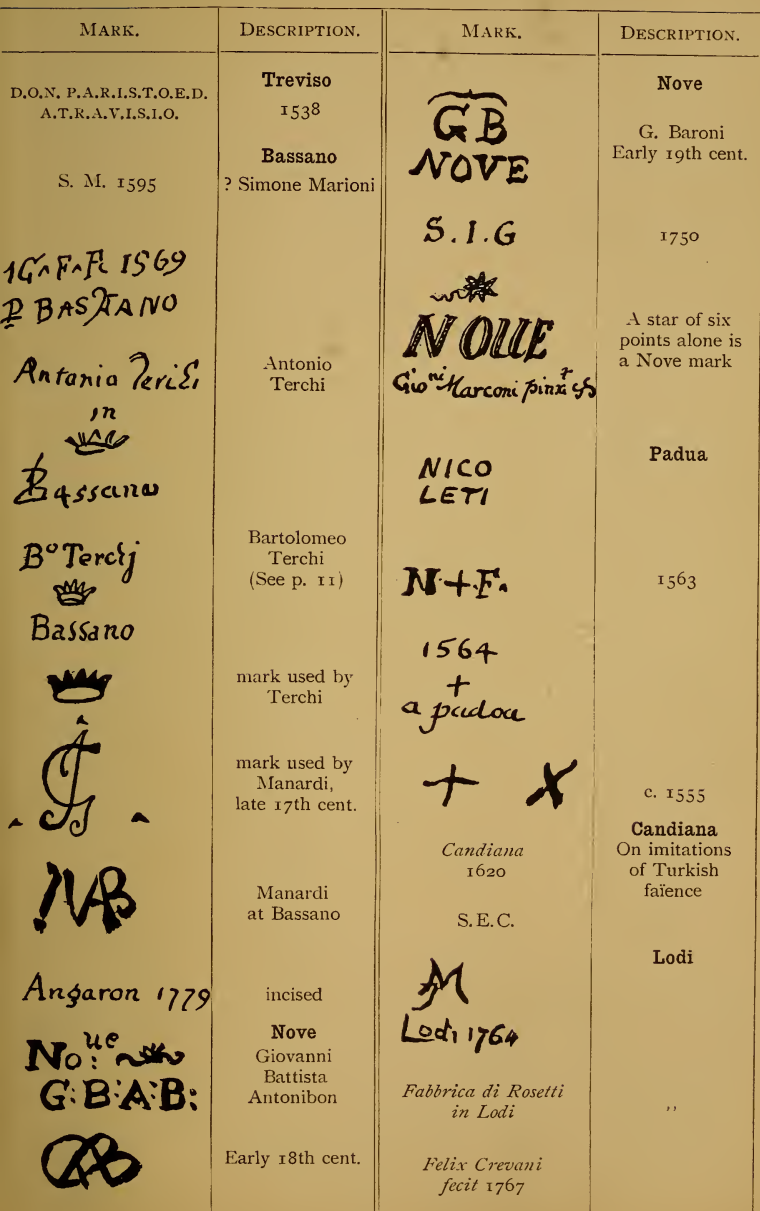 MARK.
DESCRIPTION.
D.O.N. P.A.R.I.S.T.O.E.D.
A.T.R.A.V.I.S.I.O.
Treviso
1538
Bassano
S. M. 1595
? Simone Marioni
1569
BASSANO
Antonio Terchi
in
Bassano
Antonio
Terchi
Bº Terchj
Bassano
Bartolomeo
Terchi
(See p. 11)
mark used by
Terchi
mark used by
Manardi,
late 17th cent.
Manardi
at Bassano
Angaron 1779
incised
No:ue
G:B:A:B:
Nove
Giovanni
Battista
Antonibon
Early 18th cent.
MARK.
DESCRIPTION.
GB
NOVE
Nove
G. Baroni
Early 19th cent.
S.I.G
1750
NOUE
Gioni Marconi pinx
A star of six
points alone is
a Nove mark
Padua
NICO
LETI
N+F.
1563
1564
+
a padoa
+ X
c. 1555
Candiana
1620
S.E.C.
Candiana
On imitations
of Turkish
faïence
Lodi
Lodi 1764
Fabbrica di Rosetti
in Lodi
"
Felix Crevani
fecit 1767